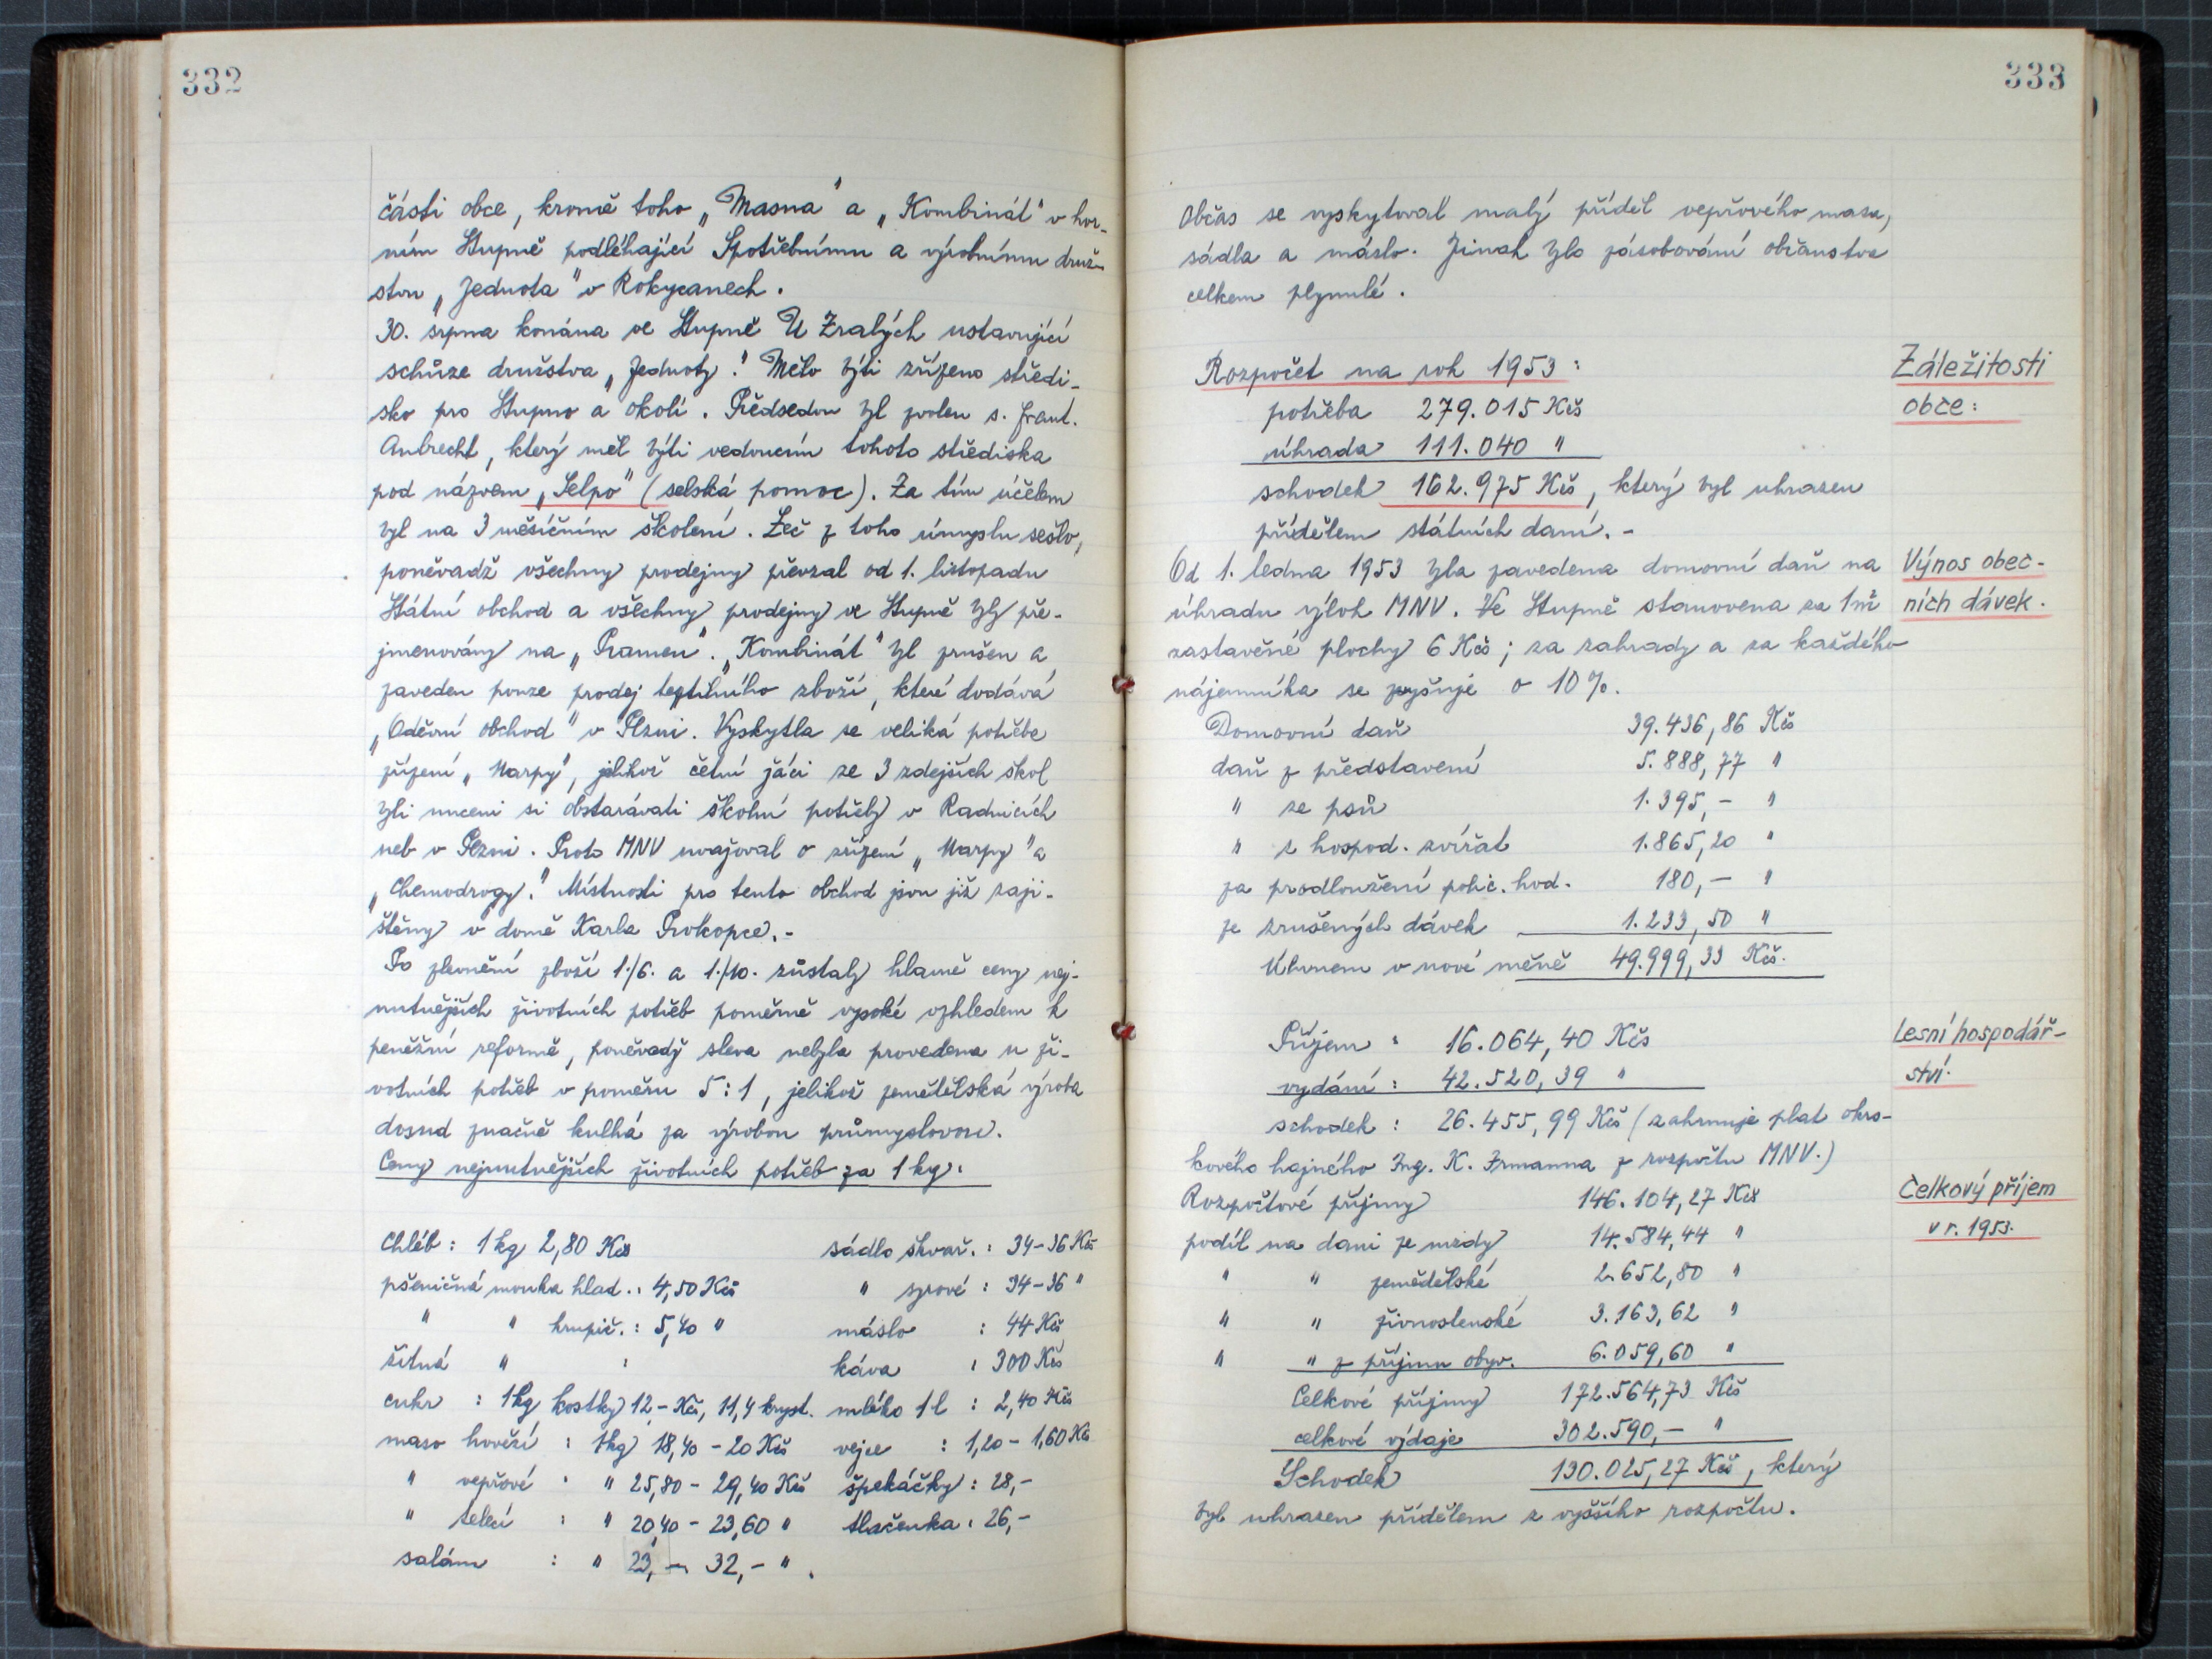 332
části obce, kromě toho „Masna" a „Kombinát" v hor-
ním Stupně podléhající Spotřebnímu a výrobnímu druž-
stvu „Jednota" v Rokycanech.
30. srpna konána ve Stupně U Zralých ustavující
schůze družstva „Jednoty". Mělo býti zřízeno středi-
sko pro Stupno a okolí. Předsedou byl zvolen s. Frant.
Aubrecht, který měl býti vedoucím tohoto střediska
pod názvem „Selpo" (selská pomoc). Za tím účelem
byl na 3 měsíčním školení. Leč z toho úmyslu sešlo,
poněvadž všechny prodejny převzal od 1. listopadu
Státní obchod a všechny prodejny ve Stupně byly pře-
jmenovány na „Pramen". „Kombinát" byl zrušen a
zaveden pouze prodej textilního zboží, které dodává
„Oděvní obchod" v Plzni. Vyskytla se veliká potřeba
zřízení „Narpy", jelikož četní žáci ze 3 zdejších škol
byli nuceni si obstarávati školní potřeby v Radnicích
neb v Plzni. Proto MNV uvažoval o zřízení „Narpy" a
„Chemodrogy". Místnosti pro tento obchod jsou již zaji-
štěny v domě Karla Prokopce.-
Po zlevnění zboží 1./6. a 1./10. zůstaly hlavně ceny nej-
nutnějších životních potřeb poměrně vysoké vzhledem k
peněžní reformě, poněvadž sleva nebyla provedena u ži-
votních potřeb v poměru 5:1, jelikož zemědělská výroba
dosud značně kulhá za výrobou průmyslovou.
Ceny nejnutnějších životních potřeb za 1 kg:
Chléb: 1 kg 2,80 Kčs sádlo škvař.: 34-36 Kčs
pšeničná mouka hlad.: 4,50 Kčs " syrové : 34-36 "
" " krupič.: 5,40 " máslo : 44 Kčs
žitná " : káva : 300 Kčs
cukr : 1 kg kostky 12- Kčs, 11,4 kryst. mléko 1 l : 2,40 Kčs
maso hovězí : 1 kg 18,40 - 20 Kčs vejce : 1,20 - 1,60 Kčs
" vepřové : " 25,80 - 29,40 Kčs špekáčky : 28,-
" telecí : " 20,40 - 23,60 " tlačenka : 26,-
salám : " 23,- - 32,- " .
333
Občas se vyskytoval malý příděl vepřového masa,
sádla a máslo. Jinak bylo zásobování občanstva
celkem plynulé.
Rozpočet na rok 1953 :
Záležitosti
obce:
potřeba 279.015 Kčs
úhrada 111.040 "
schodek 162.975 Kčs, který byl uhrazen
přídělem státních daní.-
Od 1. ledna 1953 byla zavedena domovní daň na
Výnos obec-
ních dávek.
úhradu výloh MNV. Ve Stupně stanovena za 1 m²
zastavěné plochy 6 Kčs; za zahrady a za každého
nájemníka se zvyšuje o 10 %.
Domovní daň 39.436,86 Kčs
daň z představení 5.888,77 "
" ze psů 1.395,- "
" z hospod. zvířat 1.865,20 "
za prodloužení polic. hod. 180,- "
ze zrušených dávek 1.233,50 "
Úhrnem v nové měně 49.999,33 Kčs.
Příjem : 16.064,40 Kčs
Lesní hospodář-
ství.
vydání : 42.520,39 "
schodek : 26.455,99 Kčs (zahrnuje plat okrs-
kového hajného Ing. K. Irmanna z rozpočtu MNV.)
Rozpočtové příjmy 146.104,27 Kčs
Celkový příjem
v r. 1953.
podíl na dani ze mzdy 14.584,44 "
" " zemědělské 2.652,80 "
" " živnostenské 3.163,62 "
" " z příjmu obyv. 6.059,60 "
Celkové příjmy 172.564,73 Kčs
celkové výdaje 302.590,- "
Schodek 130.025,27 Kčs, který
byl uhrazen přídělem z vyššího rozpočtu.